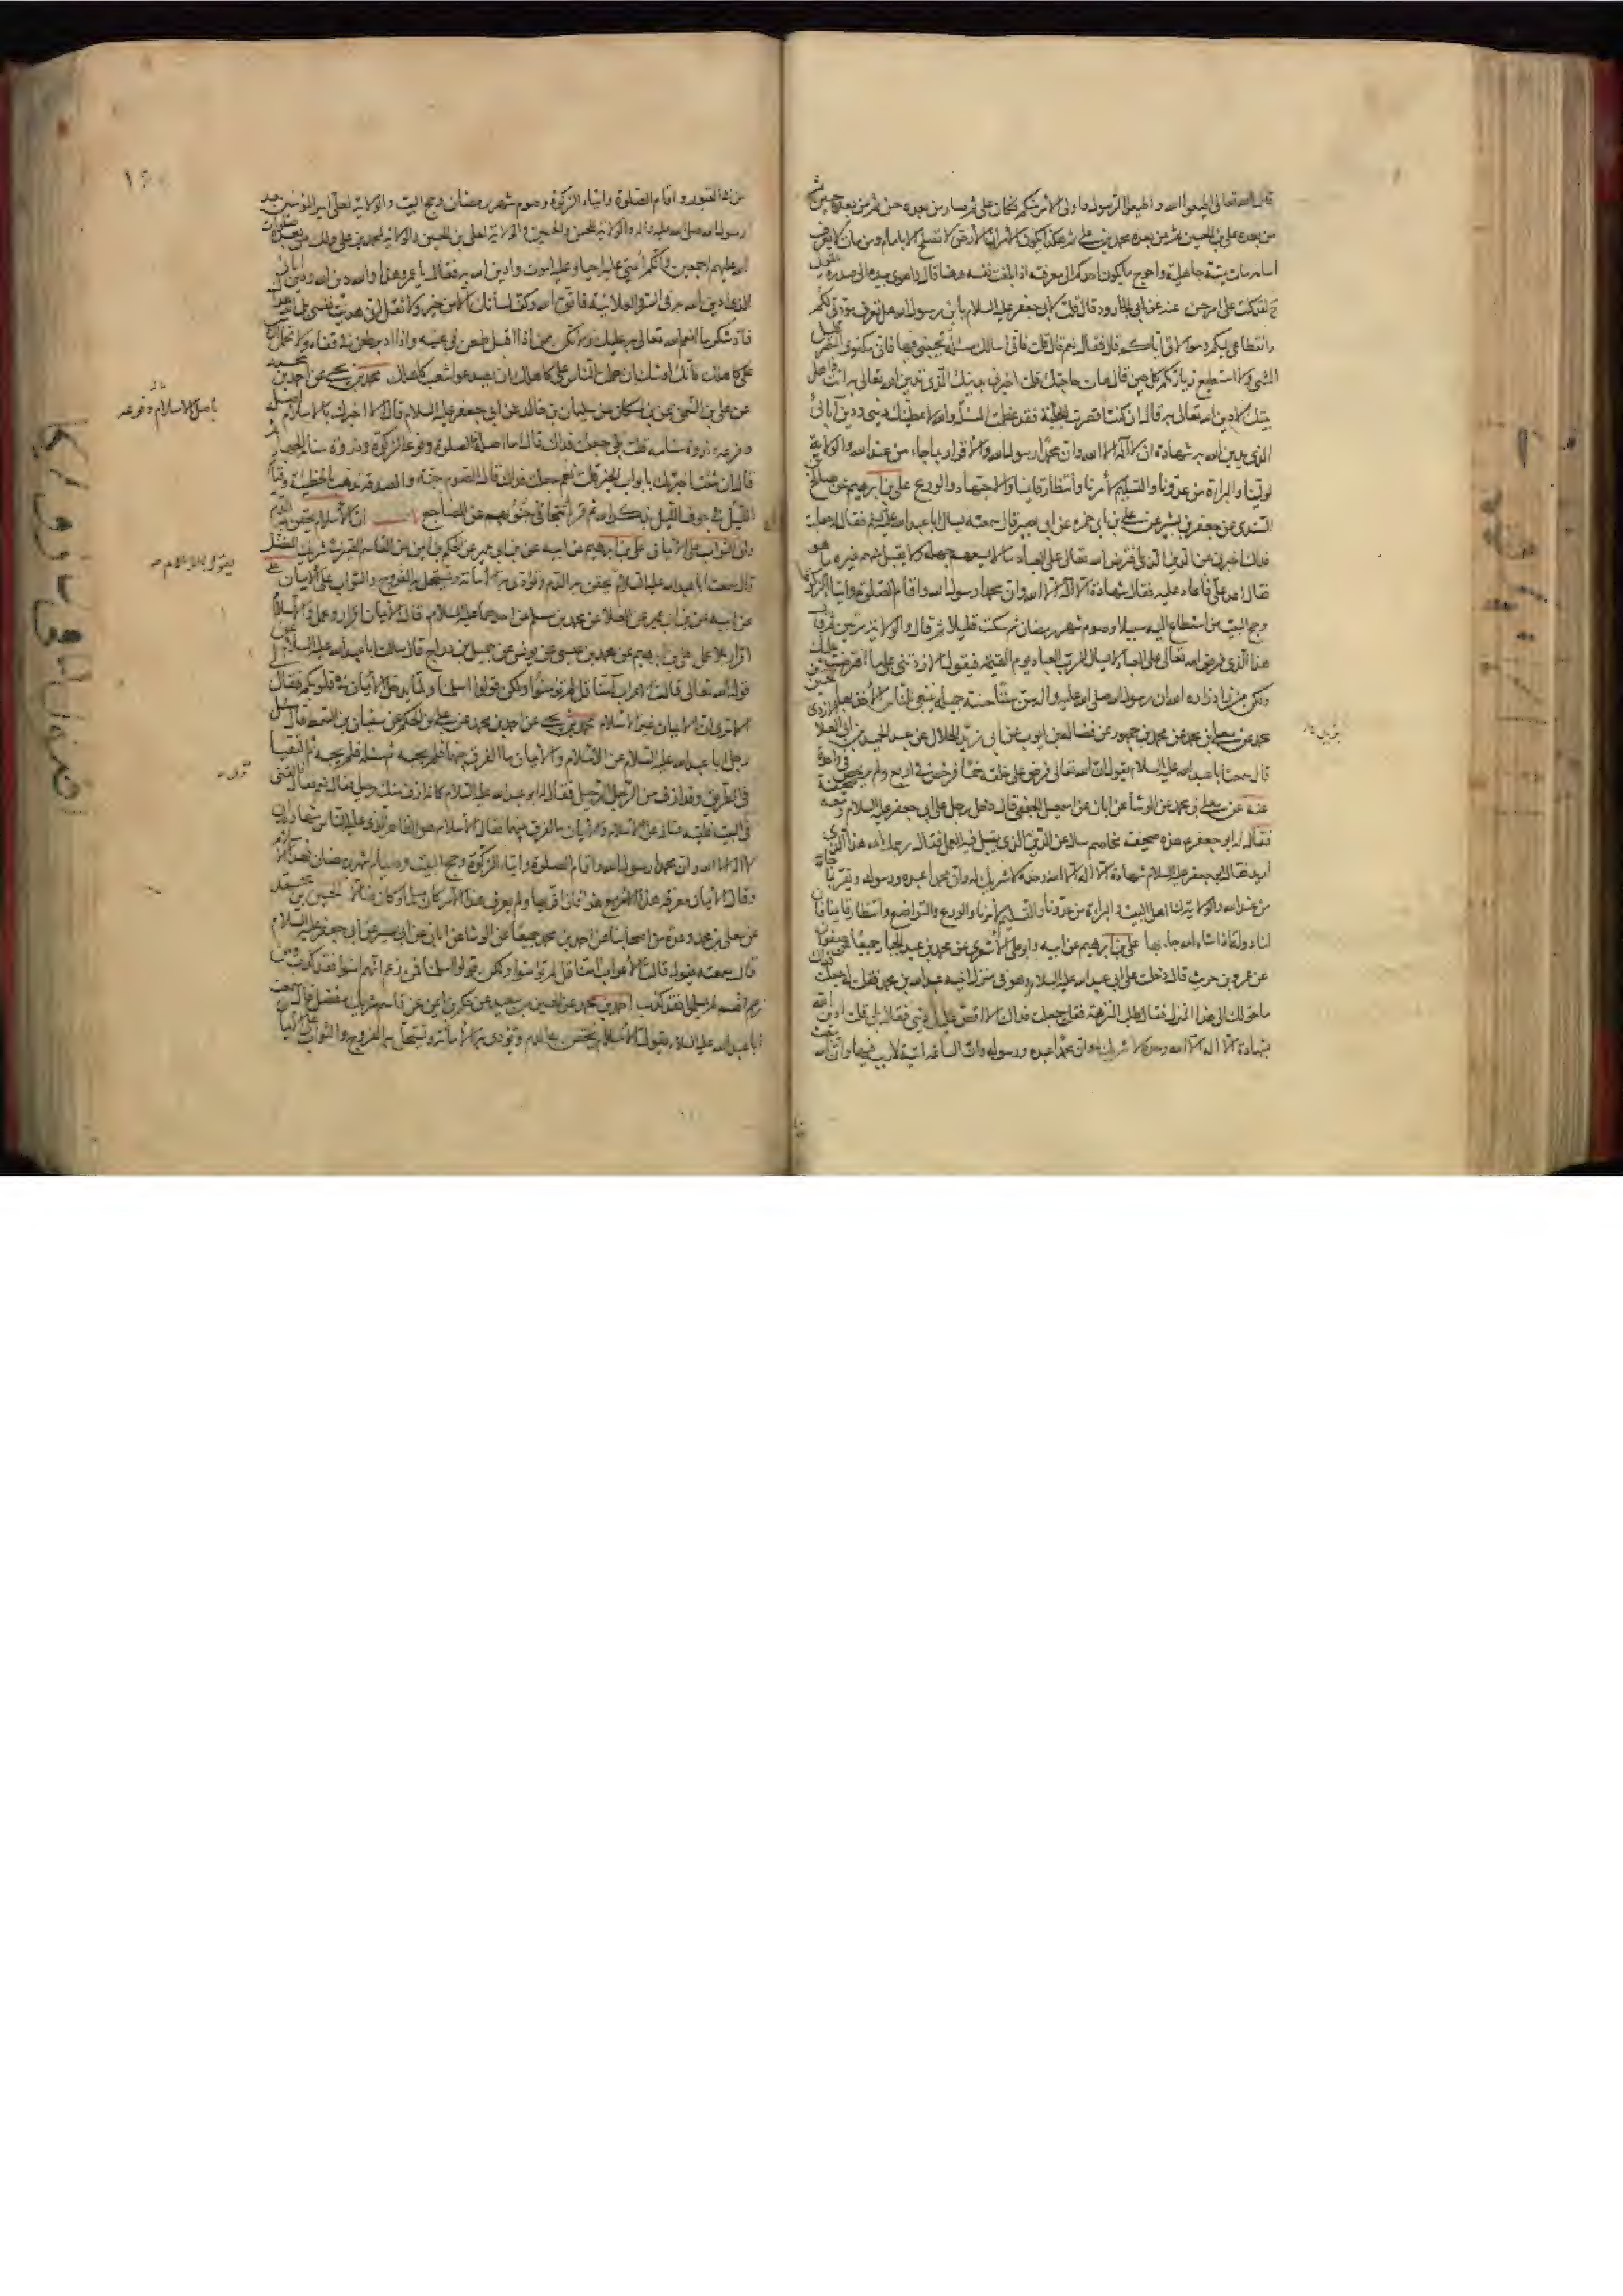 قال الله تعالى اطيعوا الله واطيعوا الرسول واولى الامر منكم فكان على ثم صار من بعده حسن ثم من بعده حسين ثم
من بعده على بن الحسين ثم من بعده محمد بن على ثم هكذا يكون الامر ان الارض لا تصلح الا بامام ومن مات لا يعرف
امامه مات ميتة جاهلية واحوج ما يكون احدكم الى معرفته اذا بلغت نفسه ههنا قال واهوى بيده الى صدره يقول
لقد كنت على امر حسن عنه عن ابى الجارود قال قلت لابى جعفر عليه السلام يا بن رسول الله هل تعرف مودتى لكم
وانقطاعى اليكم وموالاتى اياكم قال فقال نعم قال قلت فانى اسالك مسئلة تجيبنى فيها فانى مكفوف البصر قليل
المشى ولا استطيع زيارتكم كل حين قال هات حاجتك قلت اخبرنى بدينك الذى تدين الله تعالى به انت واهل
بيتك لادين الله تعالى به قال ان كنت اقصرت الخطبة فقد اعظمت المسئلة والله لاعطينك دينى ودين آبائى
الذى ندين الله به شهادة ان لا اله الا الله وان محمدا رسول الله والاقرار بما جاء من عند الله والولاية
لولينا والبراءة من عدونا والتسليم لامرنا وانتظار قائمنا والاجتهاد والورع على بن ابرهيم عن صالح بن
السندى عن جعفر بن بشير عن على بن ابى حمزة عن ابى بصير قال سمعته يسال ابا عبد الله عليه السلام فقال له جعلت
فداك اخبرنى عن الدين الذى افترض الله تعالى على العباد ما لا يسعهم جهله ولا يقبل منهم غيره ما هو
فقال اعد على فاعاد عليه فقال شهادة ان لا اله الا الله وان محمدا رسول الله واقام الصلوة وايتاء الزكوة
وحج البيت من استطاع اليه سبيلا وصوم شهر رمضان ثم سكت قليلا ثم قال والولاية مرتين ثم قال
هذا الذى فرض الله تعالى على العباد لا يسال الرب العباد يوم القيمة فيقول الا زدتنى على ما افترضت عليك
ولكن من زاد زاده الله ان رسول الله صلى الله عليه واله سن سننا حسنة جميلة ينبغى للناس الاخذ بها
محمد عن معلى بن محمد عن محمد بن جمهور عن فضالة بن ايوب عن ابى زيد الحلال عن عبد الحميد بن ابى العلا
قال سمعت ابا عبد الله عليه السلام يقول ان الله تعالى فرض على خلقه خمسا فرخص فى اربع ولم يرخص فى واحدة
عنه عن معلى بن محمد عن الوشا عن ابان عن اسمعيل الجعفى قال دخل رجل على ابى جعفر عليه السلام ومعه صحيفة
فقال له ابو جعفر هذه صحيفة مخاصم سال عن الدين الذى يقبل فيه العمل فقال رحمك الله هذا الذى
اريد فقال ابو جعفر عليه السلام شهادة ان لا اله الا الله وحده لا شريك له وان محمدا عبده ورسوله وتقر بما جاء
من عند الله والولاية لنا اهل البيت والبراءة من عدونا والتسليم لامرنا والورع والتواضع وانتظار قائمنا فان
لنا دولة اذا شاء الله جاء بها على بن ابرهيم عن ابيه وابو على الاشعرى عن محمد بن عبد الجبار جميعا عن صفوان
عن عمرو بن حريث قال دخلت على ابى عبد الله عليه السلام وهو فى منزل اخيه عبد الله بن محمد فقلت له جعلت فداك
ما حولك الى هذا المنزل فقال طلب النزهة فقلت جعلت فداك الا اقص عليك دينى فقال بلى قلت ادين الله
بشهادة ان لا اله الا الله وحده لا شريك له وان محمدا عبده ورسوله وان الساعة اتية لا ريب فيها وان الله يبعث
من فى القبور واقام الصلوة وايتاء الزكوة وصوم شهر رمضان وحج البيت والولاية لعلى امير المؤمنين بعد
رسول الله صلى الله عليه واله والولاية للحسن والحسين والولاية لعلى بن الحسين والولاية لمحمد بن على ولك من بعده صلوات
الله عليهم اجمعين وانكم ائمتى عليه احيا وعليه اموت وادين الله به فقال يا عمرو هذا والله دين الله ودين آبائى
الذى ادين الله به فى السر والعلانية فاتق الله وكف لسانك الا من خير ولا تقل انى هديت نفسى بل الله هداك
فاد شكر ما انعم الله تعالى به عليك ولا تكن ممن اذا اقبل طعن فى عينه واذا ادبر طعن فى قفاه ولا تحمل الناس
على كاهلك فانك اوشك ان حملت الناس على كاهلك ان يصدعوا شعب كاهلك محمد بن يحيى عن احمد بن محمد
عن على بن النعمان عن بن مسكان عن سليمان بن خالد عن ابى جعفر عليه السلام قال الا اخبرك بالاسلام اصله
وفرعه وذروة سنامه قلت بلى جعلت فداك قال اما اصله الصلوة وفرعه الزكوة وذروة سنامه الجهاد ثم
قال ان شئت اخبرتك بابواب الخير قلت نعم جعلت فداك قال الصوم جنة والصدقة تذهب بالخطيئة وقيام
الليل فى جوف الليل بذكر الله ثم قرأ تتجافى جنوبهم عن المضاجع باب ان الاسلام يحقن به الدم
وان الثواب على الايمان على بن ابرهيم عن ابيه عن بن ابى عمير عن الحكم بن ايمن عن القاسم الصيرفى شريك المفضل
قال سمعت ابا عبد الله عليه السلام يحقن به الدم وتؤدى به الامانة وتستحل به الفروج والثواب على الايمان على
عن ابيه عن بن ابى عمير عن العلا عن محمد بن مسلم عن احدهما عليه السلام قال الايمان اقرار وعمل والاسلام
اقرار بلا عمل على بن ابرهيم عن محمد بن عيسى عن يونس عن جميل بن دراج قال سالت ابا عبد الله عليه السلام عن
قول الله تعالى قالت الاعراب آمنا قل لم تؤمنوا ولكن قولوا اسلمنا ولما يدخل الايمان فى قلوبكم فقال لى
الا ترى ان الايمان غير الاسلام محمد بن يحيى عن احمد بن محمد عن على بن الحكم عن سفيان بن السمط قال سال
رجل ابا عبد الله عليه السلام عن الاسلام والايمان ما الفرق بينهما فلم يجبه ثم سئله فلم يجبه ثم التقيا
فى الطريق وقد ازف من الرجل الرحيل فقال له ابو عبد الله عليه السلام كانه قد ازف منك رحيل فقال نعم فقال فالقنى
فى البيت فلقيه فساله عن الاسلام والايمان ما الفرق بينهما فقال الاسلام هو الظاهر الذى عليه الناس شهادة ان
لا اله الا الله وان محمدا رسول الله واقام الصلوة وايتاء الزكوة وحج البيت وصيام شهر رمضان فهذا الاسلام
وقال الايمان معرفة هذا الامر مع هذا فان اقر بها ولم يعرف هذا الامر كان مسلما وكان ضالا الحسين بن محمد
عن معلى بن محمد وعدة من اصحابنا عن احمد بن محمد جميعا عن الوشا عن ابان عن ابى بصير عن ابى جعفر عليه السلام
قال سمعته يقول قالت الاعراب آمنا قل لم تؤمنوا ولكن قولوا اسلمنا فمن زعم انهم امنوا فقد كذب ومن
زعم انهم لم يسلموا فقد كذب احمد بن محمد عن الحسين بن سعيد عن حكم بن ايمن عن قاسم شريك المفضل قال سمعت
ابا عبد الله عليه السلام يقول الاسلام يحقن به الدم وتؤدى به الامانة وتستحل به الفروج والثواب على الايمان
باصل الاسلام وفرعه
يقول الاسلام